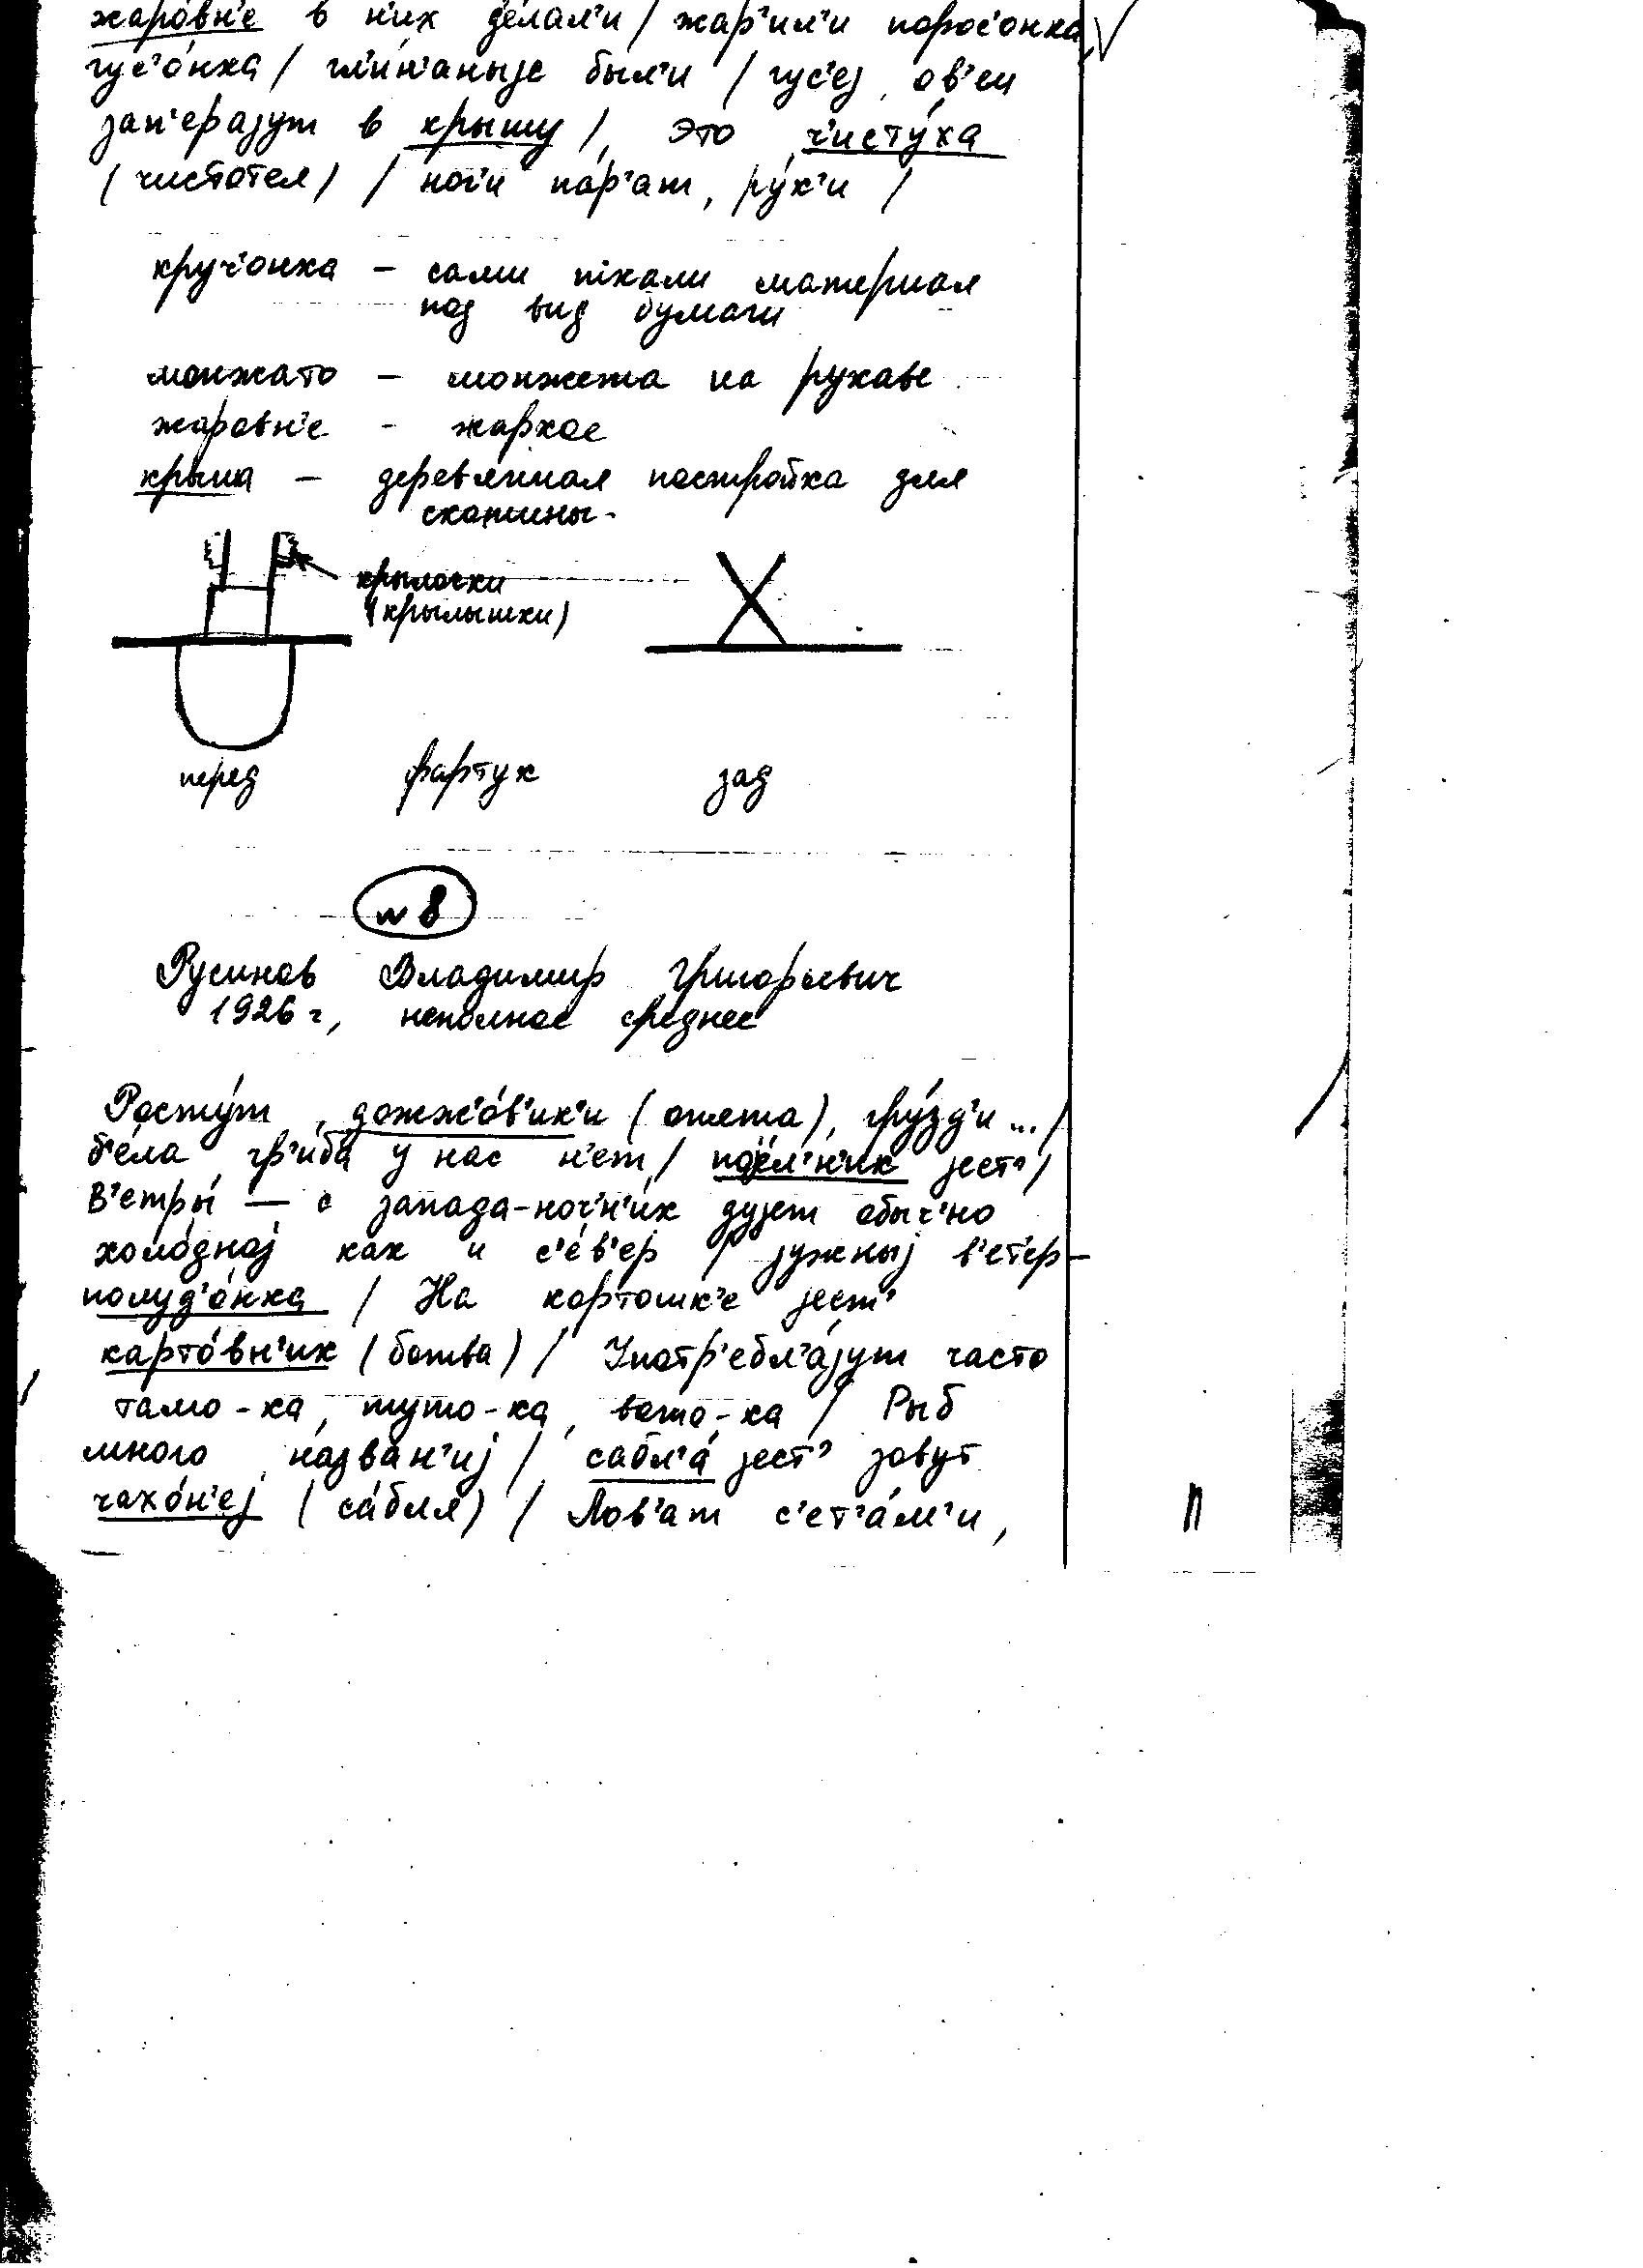 жаро́вн'е в н'их де́лал'и / жар'ил'и порос'онка,
гус'о́нка / гл'и́н'аныjе был'и / гус'еj, ов'ец
зап'ераjут в крышу /, это ч'исту́ха
(чистотел) / ног'и па́р'ат, ру́к'и /
круч'онка – сами ткали материал
под вид бумаги
манжато – манжета на рукаве
жаровн'е – жаркое
крыша – деревянная постройка для
скотины.
крылочки
(крылышки)
перед фартук зад
№ 8
Русинов Владимир Григорьевич
1926 г, неполное среднее
Расту́т дожжо́в'ик'и (опята), гру́зд'и ... /
б'е́ла гр'иба́ у нас н'ет / jест' /
В'етры́ — с запада-ноч'н'и́к дуjет обыч'но
холо́дноj как и с'е́в'ер / jужныj в'ет'ер –
полуд'о́нка / На картошк'е jест'
карто́вн'ик (ботва) / Употр'ебл'а́jут часто
тамо-ка, туто-ка, вото-ка / Рыб
много назва́н'иj / сабл'а́ jест' зовут
чахо́н'еj (са́бля) / Лов'ат с'ет'а́м'и,